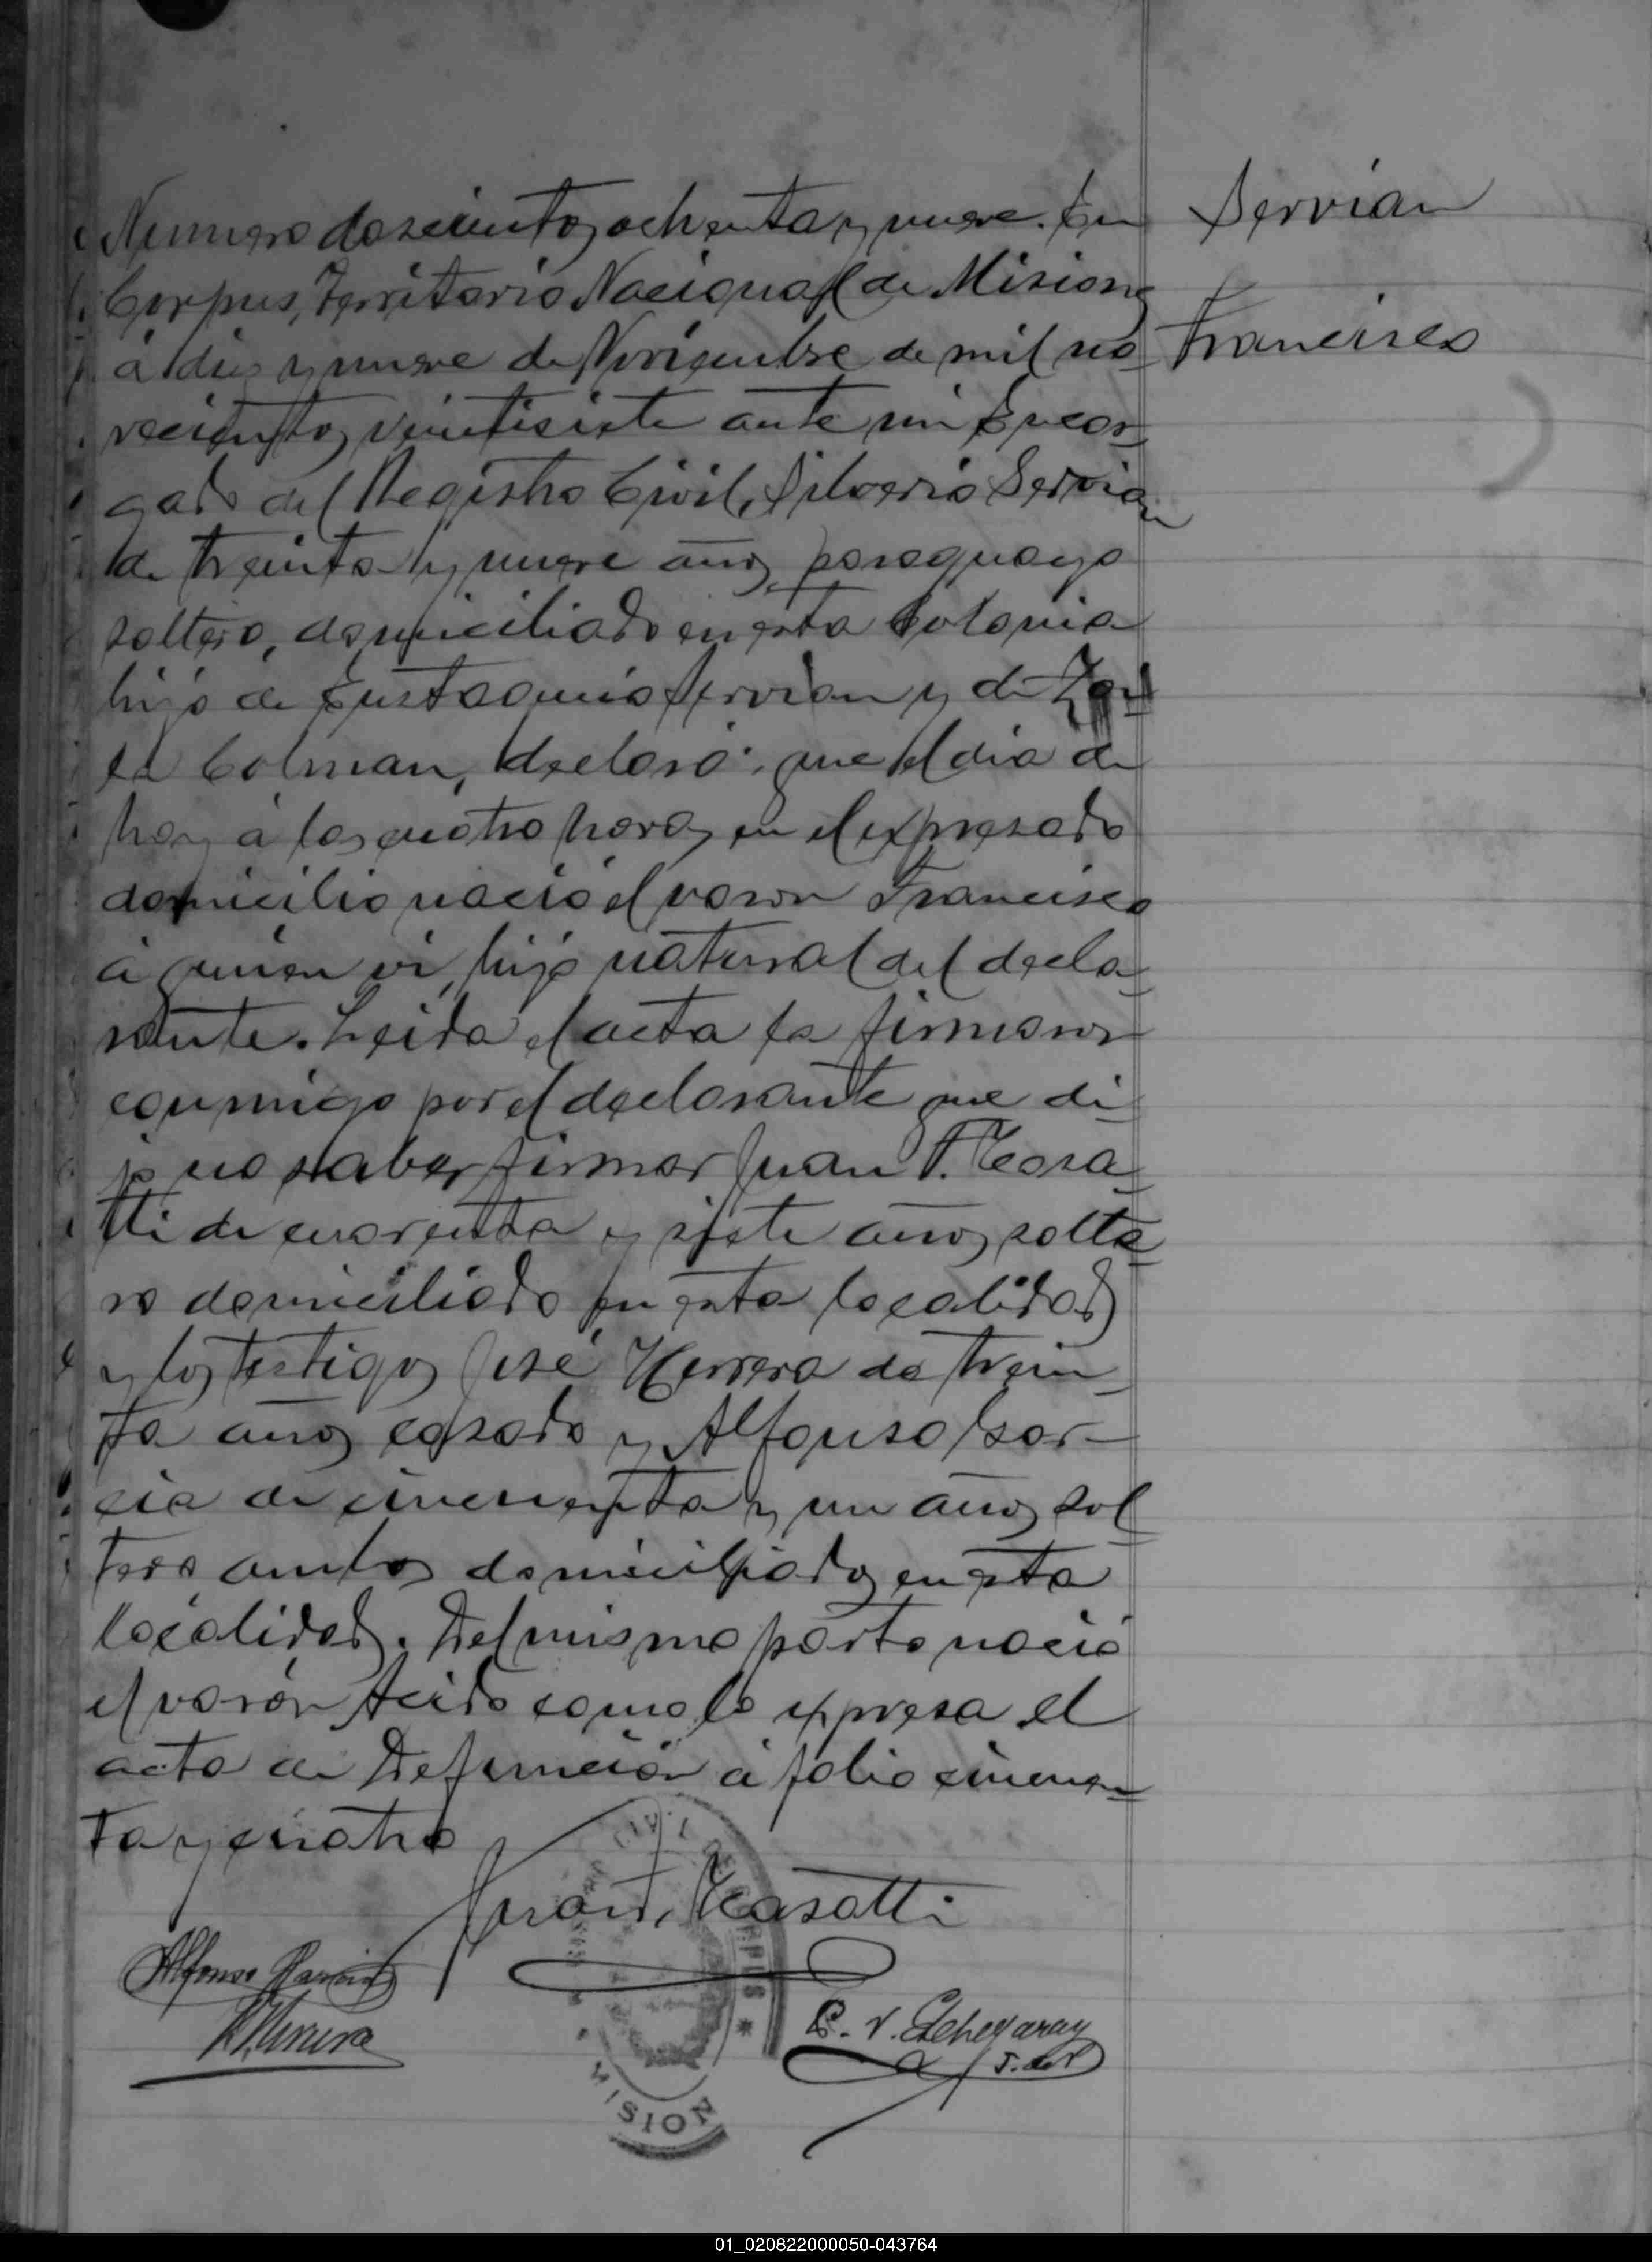 Servian
Francisco
Numero doscientos ochenta y nueve. En
Corpus, Territorio Nacional de Misiones
á diez y nueve de Noviembre de mil no-
vecientos veintisiete ante mi Encar-
gado del Registro Civil, Silverio Servian
de treinta y nueve años, paraguayo
soltero, domiciliado en esta Colonia
hijo de Eustaquio Servian y de
Colman, declaró: que el dia de
hoy á las cuatro horas en el expresado
domicilio nació el varon Francisco
á quien vi, hijo natural del decla-
rante. Leida el acta la firmaron
conmigo por el declarante que di-
jo no saber firmar Juan T. Teosa-
tti de cuarenta y siete años, solte-
ro domiciliado en esta localidad
y los testigos José Herrera de trein-
ta años casado y Alfonso Gar-
cia de cincuenta y un años, sol-
tero ambos domiciliados en esta
localidad. Del mismo parto nació
el varón Acido como lo expresa el
acta de Defunción á folio cincuen-
ta y cuatro
Alfonso Garcia
Herrera
Etchegaray
J. de P.
REGISTRO CIVIL DE CORPUS * MISION
01_020822000050-043764